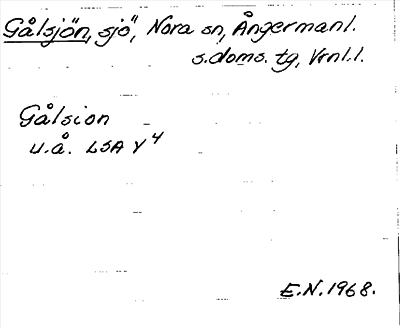 Gålsjön, sjö, Nora sn, Ångermanl.
s.doms. tg, Vrnl.l.
Gålsion
u.å. LSA Y4
E.N. 1968.